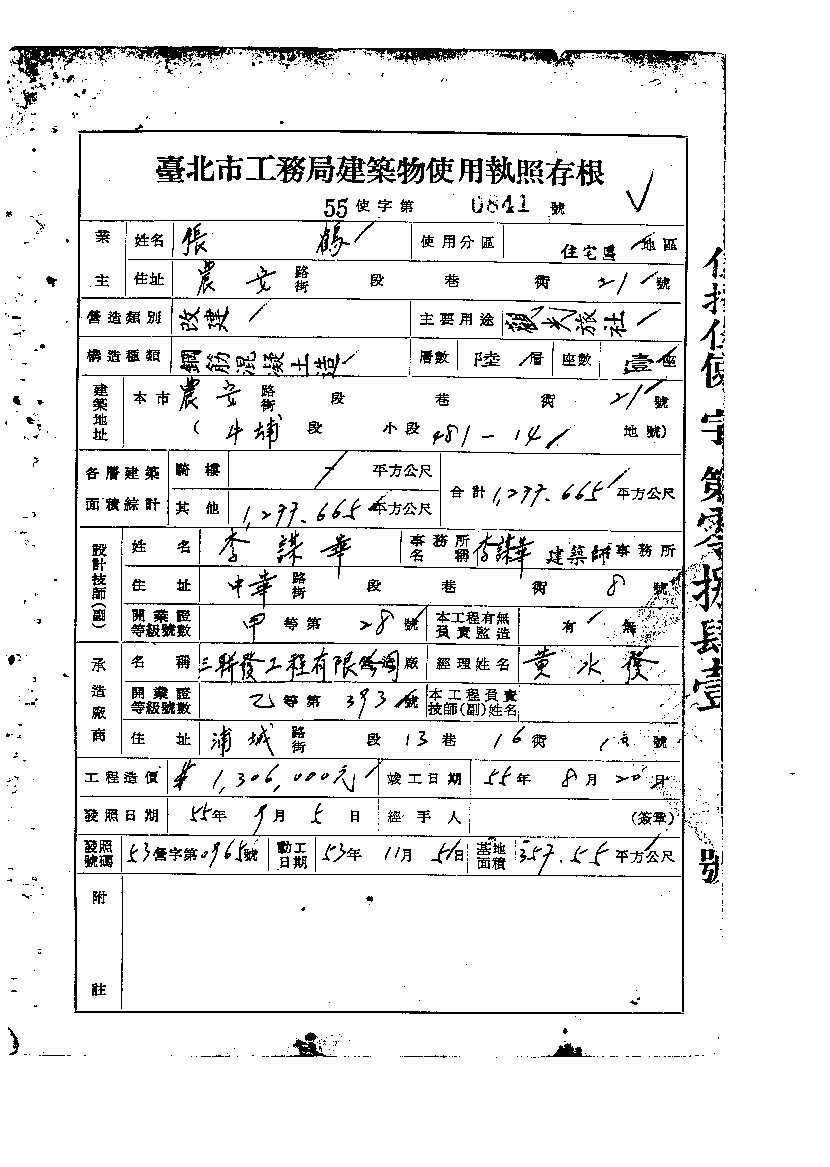 臺北市工務局建築物使用執照存根
55使字第 0841 號
業主 姓名 張鶴 使用分區 住宅區 地區
住址 農安 路街 段 巷 衖 21 號
營造類別 改建 主要用途 觀光旅社
構造種類 鋼筋混凝土造 層數 陸層 座數 壹座
建築地址 本市 農安 路街 段 巷 衖 21 號
(牛埔段 小段 481-14 地號)
各層建築面積綜計 騎樓 平方公尺 合計 1,277.665 平方公尺
其他 1,277.665 平方公尺
設計技師(副) 姓名 李謀華 事務所名稱 李謀華建築師事務所
住址 中華 路街 段 巷 衖 8 號
開業證等級號數 甲等第 28 號 本工程有無負責監造 有 無
承造廠商 名稱 三聯發工程有限公司廠 經理姓名 黃水發
開業證等級號數 乙等第 393 號 本工程負責技師(副)姓名
住址 浦城 路街 段 13 巷 16 衖 號
工程造價 1,306,000元 竣工日期 55年 8月 20日
發照日期 55年 9月 5日 經手人 (簽章)
發照號碼 53營字第0965號 動工日期 53年 11月 5日 基地面積 357.55 平方公尺
附註
使字第零捌肆壹號